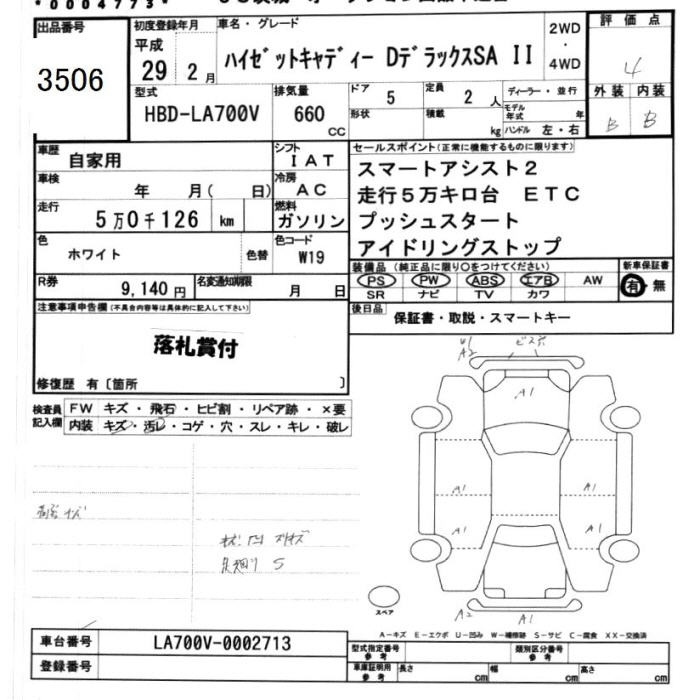 *0004773*
出品番号
3506
初度登録年月
平成
29 2 月
車名・グレード
ハイゼットキャディー DデラックスSA II
2WD
・
4WD
評価点
4
外装 内装
B B
型式
HBD-LA700V
排気量
660
CC
ドア
5
形状
定員
2 人
積載
kg
ディーラー・並行
モデル
年式 年
ハンドル 左・右
車歴
自家用
シフト
IAT
車検
年 月( 日)
冷房
AC
走行
5万0千126 km
燃料
ガソリン
色
ホワイト
色替
色コード
W19
R券
9,140 円
名変通知期限
月 日
セールスポイント(正常に機能するものに限ります)
スマートアシスト2
走行5万キロ台 ETC
プッシュスタート
アイドリングストップ
装備品(純正品に限り○をつけてください)
PS PW ABS エアB AW
SR ナビ TV カワ
新車保証書
有・無
後日品
保証書・取説・スマートキー
注意事項申告欄(不具合内容等は具体的に記入して下さい)
落札賞付
修復歴 有〔箇所 〕
検査員
記入欄
FW キズ・飛石・ヒビ割・リペア跡・×要
内装 キズ・汚レ・コゲ・穴・スレ・キレ・破レ
A2
A1
A1
A1
A1
A1
A2
A1
スペア
A-キズ E-エクボ U-凹み W-補修跡 S-サビ C-腐食 XX-交換済
車台番号
LA700V-0002713
登録番号
型式指定番号
参考
類別区分番号
参考
車庫証明用
参考
長さ cm
幅 cm
高さ cm